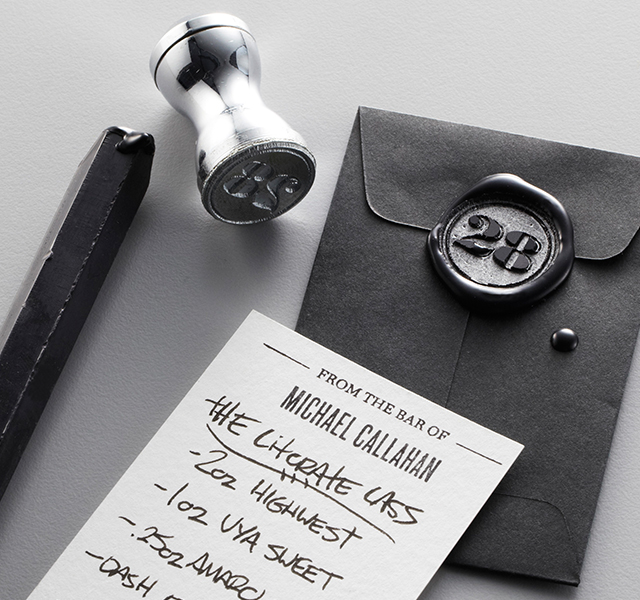 28
FROM THE BAR OF
MICHAEL CALLAHAN
THE LITORATE LASS
-2OZ HIGHWEST
-1OZ UYA SWEET
-.25OZ AMARO
-DASH